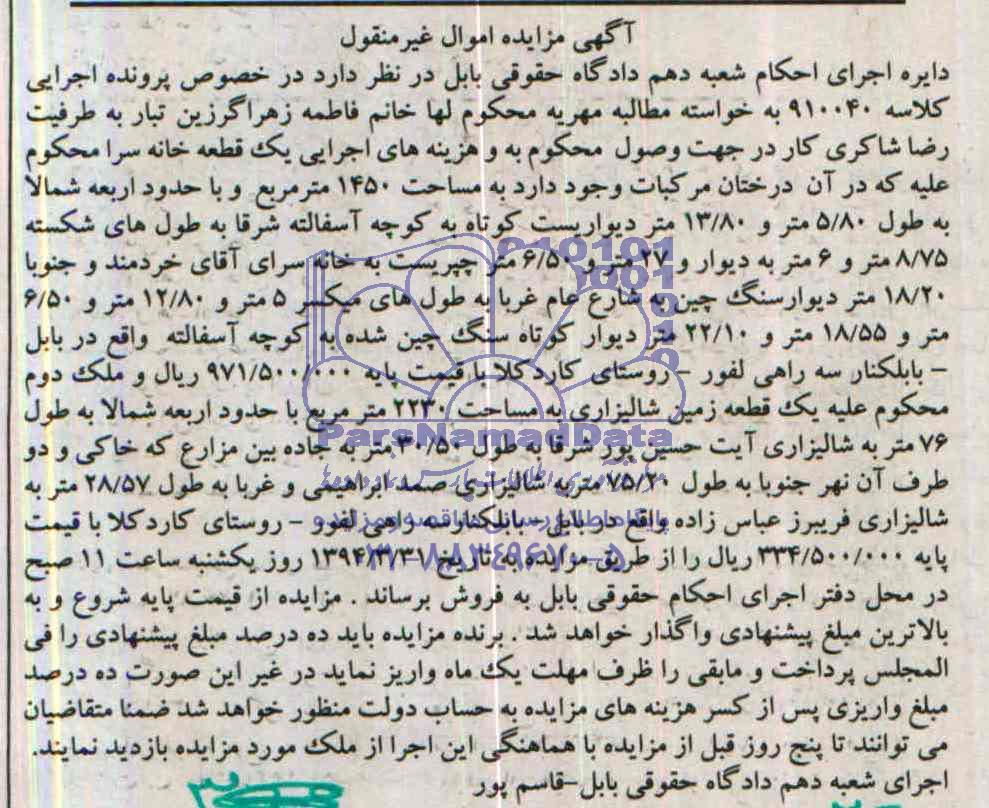 آگهی مزایده اموال غیرمنقول
دایره اجرای احکام شعبه دهم دادگاه حقوقی بابل در نظر دارد در خصوص پرونده اجرایی
کلاسه ۹۱۰۰۴۰ به خواسته مطالبه مهریه محکوم لها خانم فاطمه زهراگرزین تبار به طرفیت
رضا شاکری کار در جهت وصول محکوم به و هزینه های اجرایی یک قطعه خانه سرا محکوم
علیه که در آن درختان مرکبات وجود دارد به مساحت ۱۴۵۰ مترمربع و با حدود اربعه شمالا
به طول ۵/۸۰ متر و ۱۳/۸۰ متر دیواریست کوتاه به کوچه آسفالته شرقا به طول های شکسته
۸/۷۵ متر و ۶ متر به دیوار و ۲۷ متر و ۶/۵۰ متر چپریست به خانه سرای آقای خردمند و جنوبا
۱۸/۲۰ متر دیوارسنگ چین به شارع عام غربا به طول های میکسر ۵ متر و ۱۲/۸۰ متر و ۶/۵۰
متر و ۱۸/۵۵ متر و ۲۲/۱۰ متر دیوار کوتاه سنگ چین شده به کوچه آسفالته واقع در بابل
– بابلکنار سه راهی لفور – روستای کاردکلا با قیمت پایه ۹۷۱/۵۰۰/۰۰۰ ریال و ملک دوم
محکوم علیه یک قطعه زمین شالیزاری به مساحت ۲۲۳۰ متر مربع با حدود اربعه شمالا به طول
۷۶ متر به شالیزاری آیت حسین پور شرقا به طول ۳۰/۵۰ متر به جاده بین مزارع که خاکی و دو
طرف آن نهر جنوبا به طول ۷۵/۲۰ متر به شالیزاری صمد ابراهیمی و غربا به طول ۲۸/۵۷ متر به
شالیزاری فریبرز عباس زاده واقع در بابل – بابلکنار سه راهی لفور – روستای کاردکلا با قیمت
پایه ۳۳۴/۵۰۰/۰۰۰ ریال را از طریق مزایده به تاریخ ۱۳۹۴/۳/۳۱ روز یکشنبه ساعت ۱۱ صبح
در محل دفتر اجرای احکام حقوقی بابل به فروش برساند . مزایده از قیمت پایه شروع و به
بالاترین مبلغ پیشنهادی واگذار خواهد شد . برنده مزایده باید ده درصد مبلغ پیشنهادی را فی
المجلس پرداخت و مابقی را ظرف مهلت یک ماه واریز نماید در غیر این صورت ده درصد
مبلغ واریزی پس از کسر هزینه های مزایده به حساب دولت منظور خواهد شد ضمنا متقاضیان
می توانند تا پنج روز قبل از مزایده با هماهنگی این اجرا از ملک مورد مزایده بازدید نمایند.
اجرای شعبه دهم دادگاه حقوقی بابل–قاسم پور
ParsNamadData